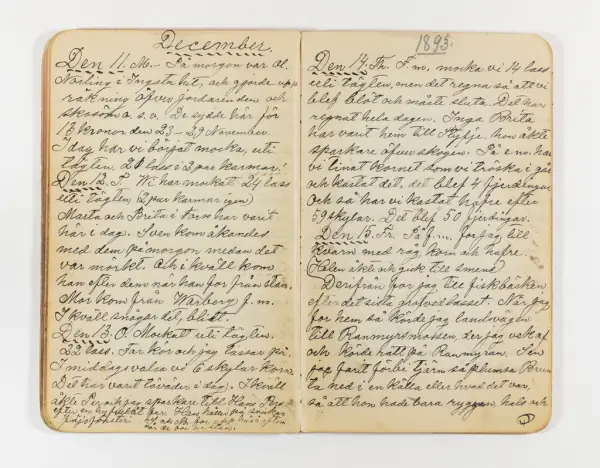 December.
Den 11. M.- På morgon var Ol.
Norling i Ingsta hit, och gjorde upp
räkning öfver gördarenden och
skosöm o. s. v. De sydde här för
13 kronor den 23 - 29 November.
I dag har vi börjat mocka, uti
tägten, 21 lass i 2 par karmar!
Den 12. T. Vi har mockat 24 lass
uti tägten (2 par karmar igen)
Marta och Brita i Pors har varit
här i dag. Sven kom åkandes
med dem på morgon medan det
var mörkt. Och i kväll kom
han efter dem när han for från stan.
Mor kom från Warberg f. m.
I kväll snögar det, blidt.
Den 13. O. Mockatt uti tägten.
22 lass. Far kör och jag lassar på.
I middagsvala vi 6 skylar korn.
Det har varit töväder i dag. I kväll
åkte Per och jag sparkare till Hans Pers
efter en
1895.
Den 14. Th. F. m. mocka vi 14 lass
uti tägten, men det regna så att vi
blef blöt och måste sluta. Det har
regnat hela dagen. Inga Brita
har varit hem till Flyfje. hon åkte
sparkare öfver skogen. På e. m. har
vi tinat kornet som vi tröska i går
och kastat det. det blef 4 fjerdingar
Och så har vi kastat hafre efter
59 skylar. Det blef 50 fjerdingar.
Den 15. Fr. På f. m. for jag till
kvarn med råg, korn och hafre.
Halm åkte och gick till smend
Derifrån for jag till fiskbäcken
efter det sista grotvedlasset. När jag
for hem så körde jag landvägen
till Ranmyrsmossen, der jag vek af
och körde rätt på Ranmyran. Sen
jag farit förbi tjärn så plumsa Brun
ta ned i en källa eller hvad det var,
så att hon hade bara ryggen, hals och